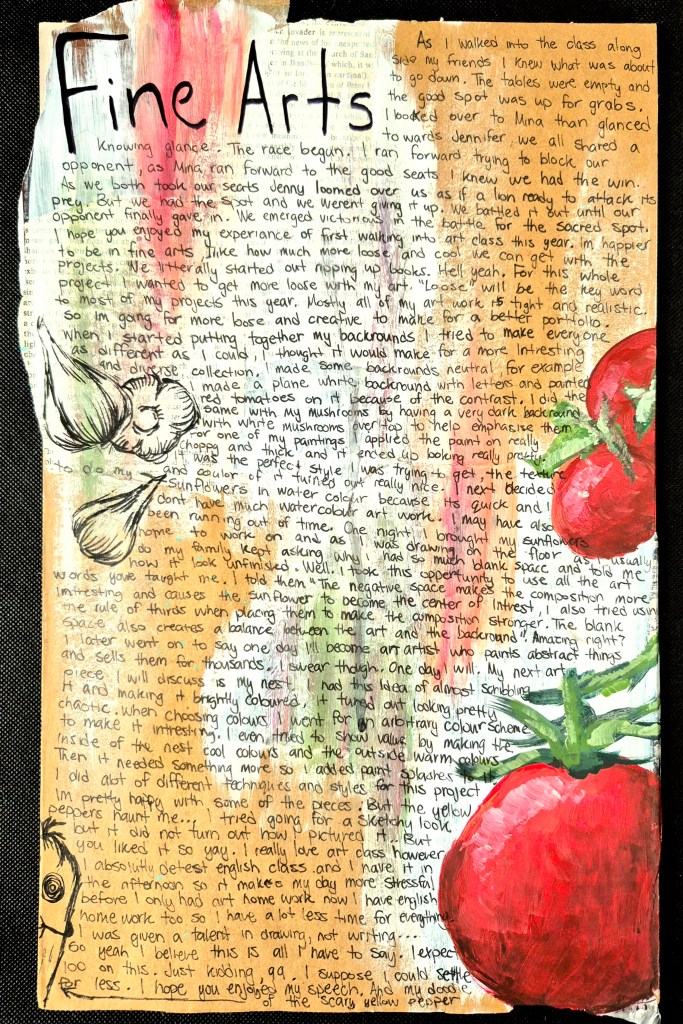 Fine Arts
As I walked into the class along
side my friends I knew what was about
to go down. The tables were empty and
the good spot was up for grabs.
I looked over to Mina than glanced
towards Jennifer we all shared a
knowing glance. The race begun. I ran forward trying to block our
opponent, as Mina ran forward to the good seats I knew we had the win.
As we both took our seats Jenny loomed over us as if a lion ready to attack its
prey. But we had the spot and we werent giving it up. We battled it out until our
opponent finally gave in. We emerged victorious in the battle for the sacred spot.
I hope you enjoyed my experiance of first walking into art class this year. Im happier
to be in fine arts I like how much more loose and cool we can get with the
projects. We litterally started out ripping up books. Hell yeah. For this whole
project I wanted to get more loose with my art. "Loose" will be the key word
to most of my projects this year. Mostly all of my art work is tight and realistic.
So im going for more loose and creative to make for a better portfolio.
when I started putting together my backrounds I tried to make everyone
as different as I could, I thought it would make for a more intresting
and diverse collection. I made some backrounds neutral for example
I made a plane white backround with letters and painted
red tomatoes on it because of the contrast. I did the
same with my mushrooms by having a very dark backround
with white mushrooms over top to help emphasise them
For one of my paintings I applied the paint on really
choppy and thick and it ended up looking really pretty.
It was the perfect style I was trying to get, the texture
and coulor of it turned out really nice. I next decided
to do my
Sunflowers in water colour because its quick and I
dont have much watercolour art work. I may have also
been running out of time. One night I brought my sunflowers
home to work on and as I was drawing on the floor as I usually
do my family kept asking why I had so much blank space and told me
how it look unfinished. Well. I took this opportunity to use all the art
words youve taught me. I told them "The negative space makes the composition more
intresting and causes the sunflower to become the center of intrest, I also tried usin
the rule of thirds when placing them to make the composition stronger. The blank
space also creates a balance between the art and the backround". Amazing right?
I later went on to say one day I'll become an artist who paints abstract things
and sells them for thousands. I swear though. One day I will. My next art
piece I will discuss is my nest. I had this idea of almost scribbling
it and making it brightly coloured, it turned out looking pretty
chaotic. when choosing colours I went for an arbitrary colour scheme
to make it intresting. I even tried to show value by making the
inside of the nest cool colours and the outside warm colours.
Then it needed something more so I added paint splashes to it
I did alot of different techniques and styles for this project
Im pretty happy with some of the pieces. But the yellow
peppers haunt me... I tried going for a sketchy look
but it did not turn out how I pictured it... But
you liked it so yay. I really love art class however
I absolutly detest english class and I have it in
the afternoon so it makes my day more stressful
before I only had art home work now I have english
home work too so I have a lot less time for everything.
I was given a talent in drawing, not writing....
So yeah I believe this is all I have to say. I expect
100 on this. Just kidding, 99. I suppose I could settle
for less. I hope you enjoyed my speech. And my doodle
of the scary yellow pepper